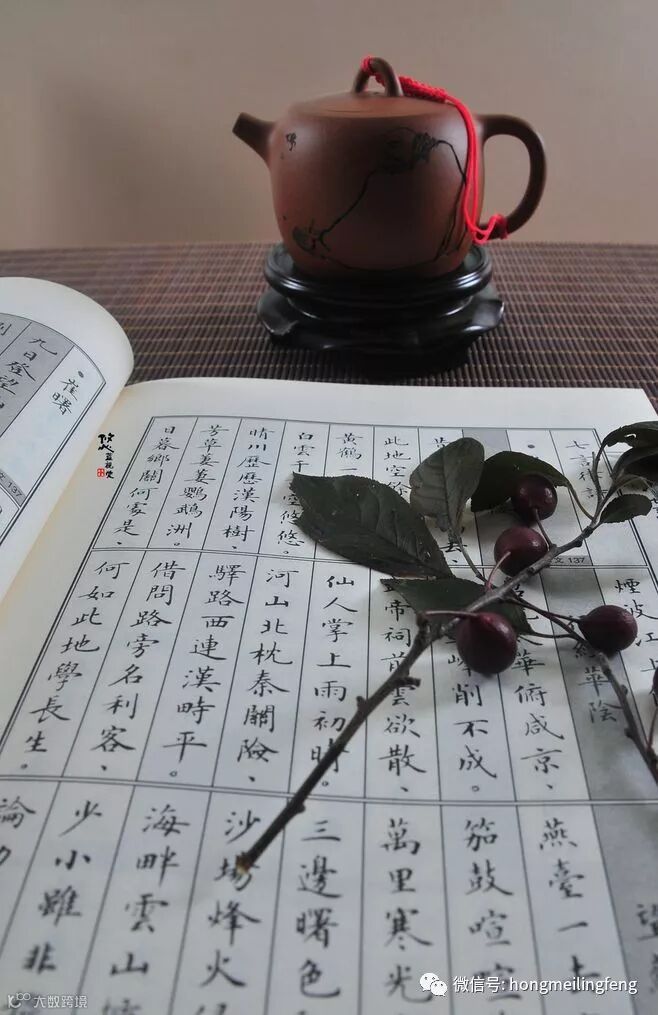 崔曙
九日登望
137
七言律詩
137
此地空餘
黃鶴
白雲千空悠悠。
晴川歷歷漢陽樹、
芳草萋萋鸚鵡洲。
日暮鄉關何處是、
煙波江上
經華陰
華俯咸京、
峰削不成。
帝祠前雲欲散、
仙人掌上雨初晴。
河山北枕秦關險、
驛路西連漢畤平。
借問路旁名利客、
何如此地學長生。
燕臺一去
笳鼓喧喧
萬里寒光
三邊曙色
沙場烽火
海畔雲山
少小雖非
論功
微信号: hongmeilingfeng
大数跨境